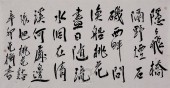 隱隱飛橋
隔野煙石
磯西畔問
漁船桃花
盡日隨流
水洞在清
溪何處邊